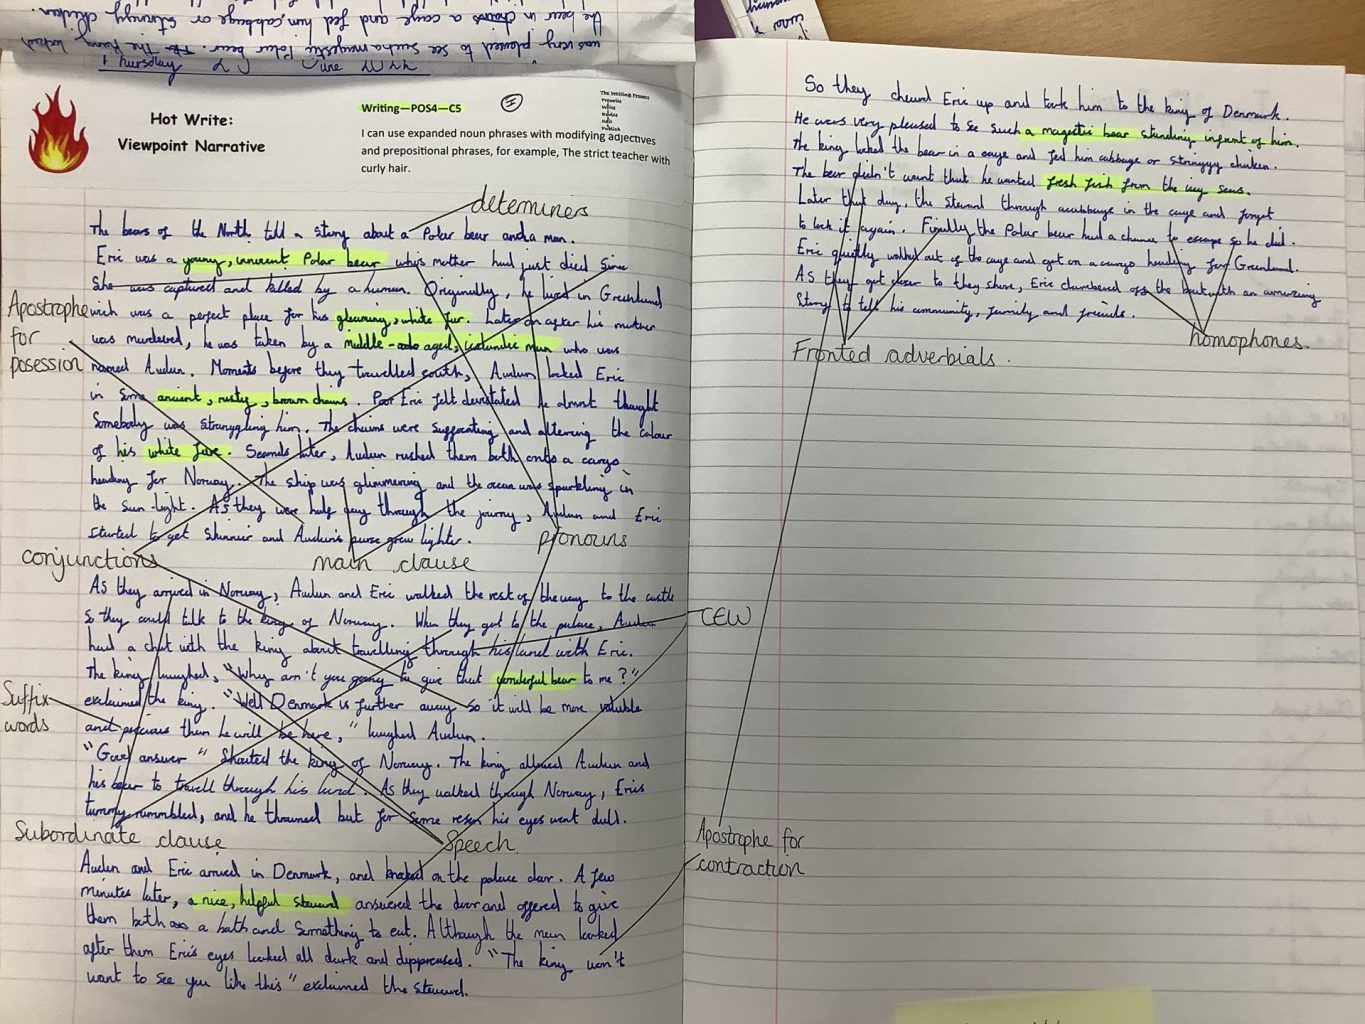 was very pleased to see such a majestic Polar bear. The king locked
the bear in a cage and fed him cabbage or stringy chicken.
Thursday
June
Hot Write:
Viewpoint Narrative
Writing—POS4—C5
I
The Writing Process
I can use expanded noun phrases with modifying adjectives
and prepositional phrases, for example, The strict teacher with
curly hair.
determiners
The bears of the North told a story about a Polar bear and a man.
Eric was a young, innocent Polar bear who's mother had just died since
she was captured and killed by a human. Originally, he lived in Greenland
wich was a perfect place for his gleaming, white fur. Later on after his mother
was murdered, he was taken by a middle-aged, icelandic man who was
named Audun. Moments before they travelled south, Audun locked Eric
in some ancient, rusty, brown chains. Poor Eric felt devistated he almost thought
Somebody was strunggling him. The chains were suffocating and altering the colour
of his white fure. Seconds later, Audun rushed them both onto a cargo
heading for Norway. The ship was glimmering and the ocean was sparkling in
the sun-light. As they were half way through the journy, Audun and Eric
started to get skinnier and Auduns purse grew lighter.
Apostrophe
for
posession
conjunctions
main clause
pronouns
As they arrived in Norway, Audun and Eric walked the rest of the way to the castle
so they could talk to the king of Norway. When they got to the palace, Audun
had a chat with the king about travelling through his land with Eric.
The king laughed, "Why arn't you going to give that wonderful bear to me?"
exclaimed the king. "Well Denmark is further away so it will be more valuble
and precious then he will be here," laughed Audun.
"Good answer" Shouted the king of Norway. The king allowed Audun and
his bear to travell through his land. As they walked through Norway, Erics
tummy rummbled, and he but for some reson his eyes went dull.
CEW
Suffix
words
Subordinate clause
Speech
Audun and Eric arrived in Denmark, and knocked on the palace door. A few
minutes later, a nice, helpful steward answered the door and offered to give
them both a bath and something to eat. Although the man looked
after them Eric's eyes looked all dark and deppressed. "The king won't
want to see you like this" exclaimed the steward.
So they cheard Eric up and took him to the king of Denmark.
He was very pleased to see such a magestic bear standing infant of him.
the king locked the bear in a cage and fed him cabbage or stringyy chicken.
The bear didn't want that he wanted fresh fish from the icy seas.
Later that day, the Steward through a cabbage in the cage and forgot
to lock it again. Finally the Polar bear had a chance to escape so he did.
Eric quietly walked out of the cage and got on a cargo heading for Greenland.
As they got closer to they shore, Eric clambered off the boat with an amazing
Story to tell his community, family and friends.
Fronted adverbials.
homophones.
Apostrophe for
contraction